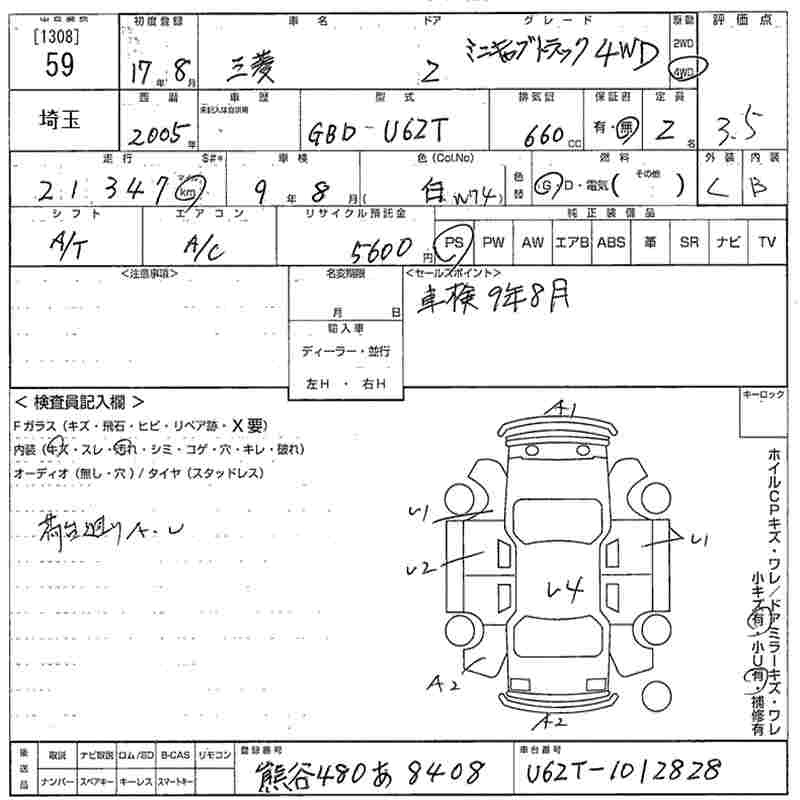 [1308]
59
初度登録
17年8月
車名
三菱
ドア
2
グレード
ミニキャブトラック 4WD
駆動
2WD
4WD
評価点
3.5
埼玉
西暦
2005年
車歴
未記入は自家用
型式
GBD-U62T
排気量
660cc
保証書
有・無
定員
2名
走行
21347
マイル
km
S#*
車検
9年8月(
色(Col.No)
白 W74)
色替
燃料
G・D・電気( その他 )
外装
C
内装
B
シフト
A/T
エアコン
A/C
リサイクル預託金
5600円
純正装備品
PS PW AW エアB ABS 革 SR ナビ TV
<注意事項>
名変期限
月 日
輸入車
ディーラー・並行
左H ・ 右H
<セールスポイント>
車検 9年8月
< 検査員記入欄 >
Fガラス(キズ・飛石・ヒビ・リペア跡・X要)
内装(キズ・スレ・汚れ・シミ・コゲ・穴・キレ・破れ)
オーディオ(無し・穴)/タイヤ(スタッドレス)
荷台廻りA.U
キーロック
A1
U1
U2
U1
U4
A2
A2
ホイルCPキズ・ワレ/ドアミラーキズ・ワレ
小キズ有・小U有・補修有
後送品
取説 ナビ取説 ロム/SD B-CAS リモコン
ナンバー スペアキー キーレス スマートキー
登録番号
熊谷480あ8408
車台番号
U62T-1012828